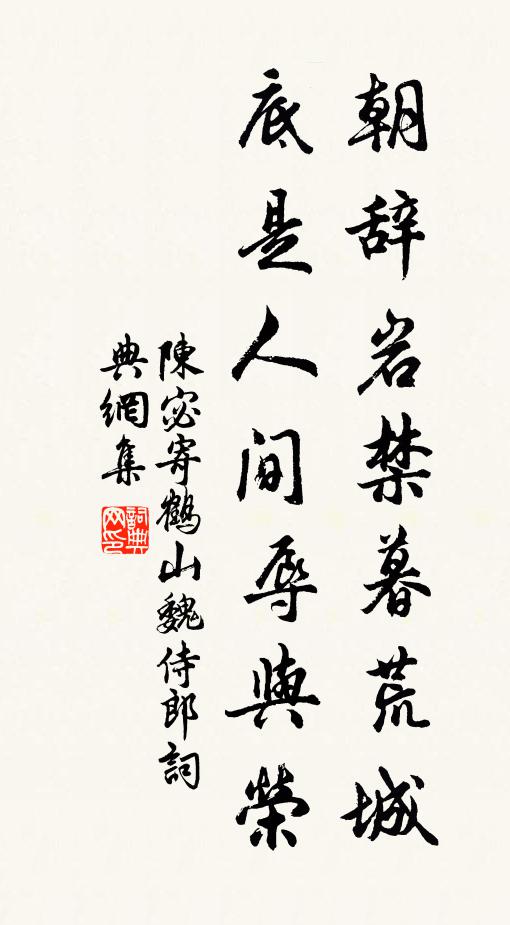 朝辞岩禁暮荒城
底是人间辱與榮
陳宓寄鶴山魏侍郎詞
典網集
詞典网印